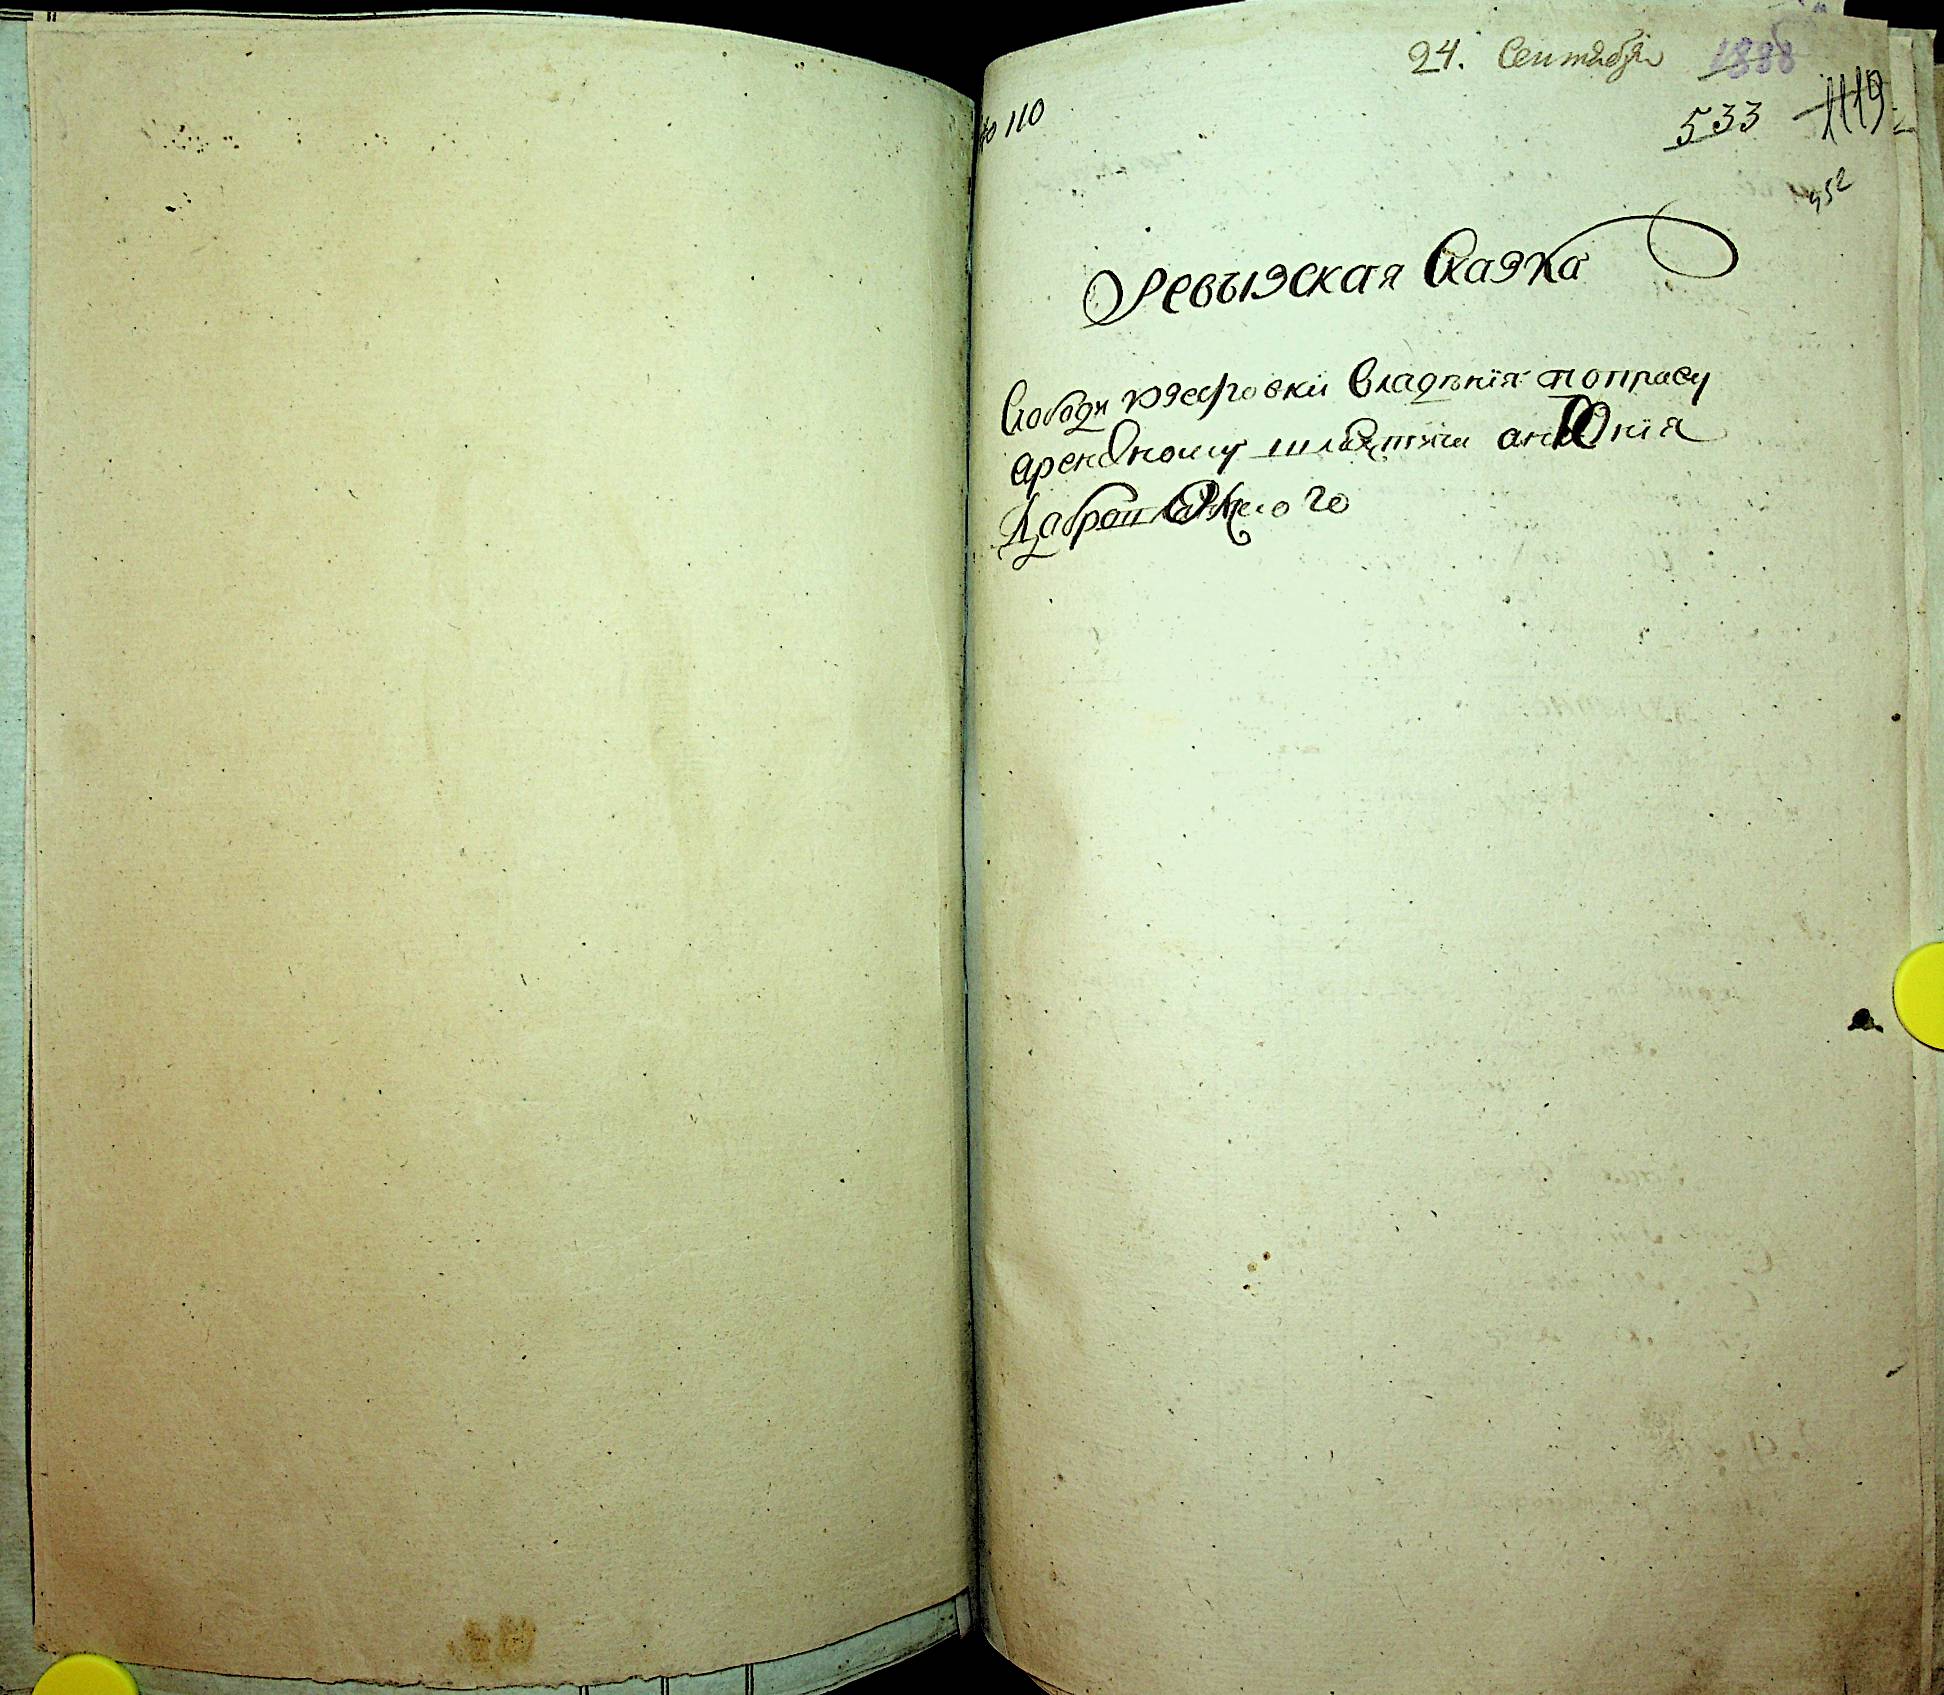 24. Сентября 1888
№ 110
533 1119
452
Ревызская Сказка
Слободи Юзефовки владѣнія по праву
арендному шляхтича антонія